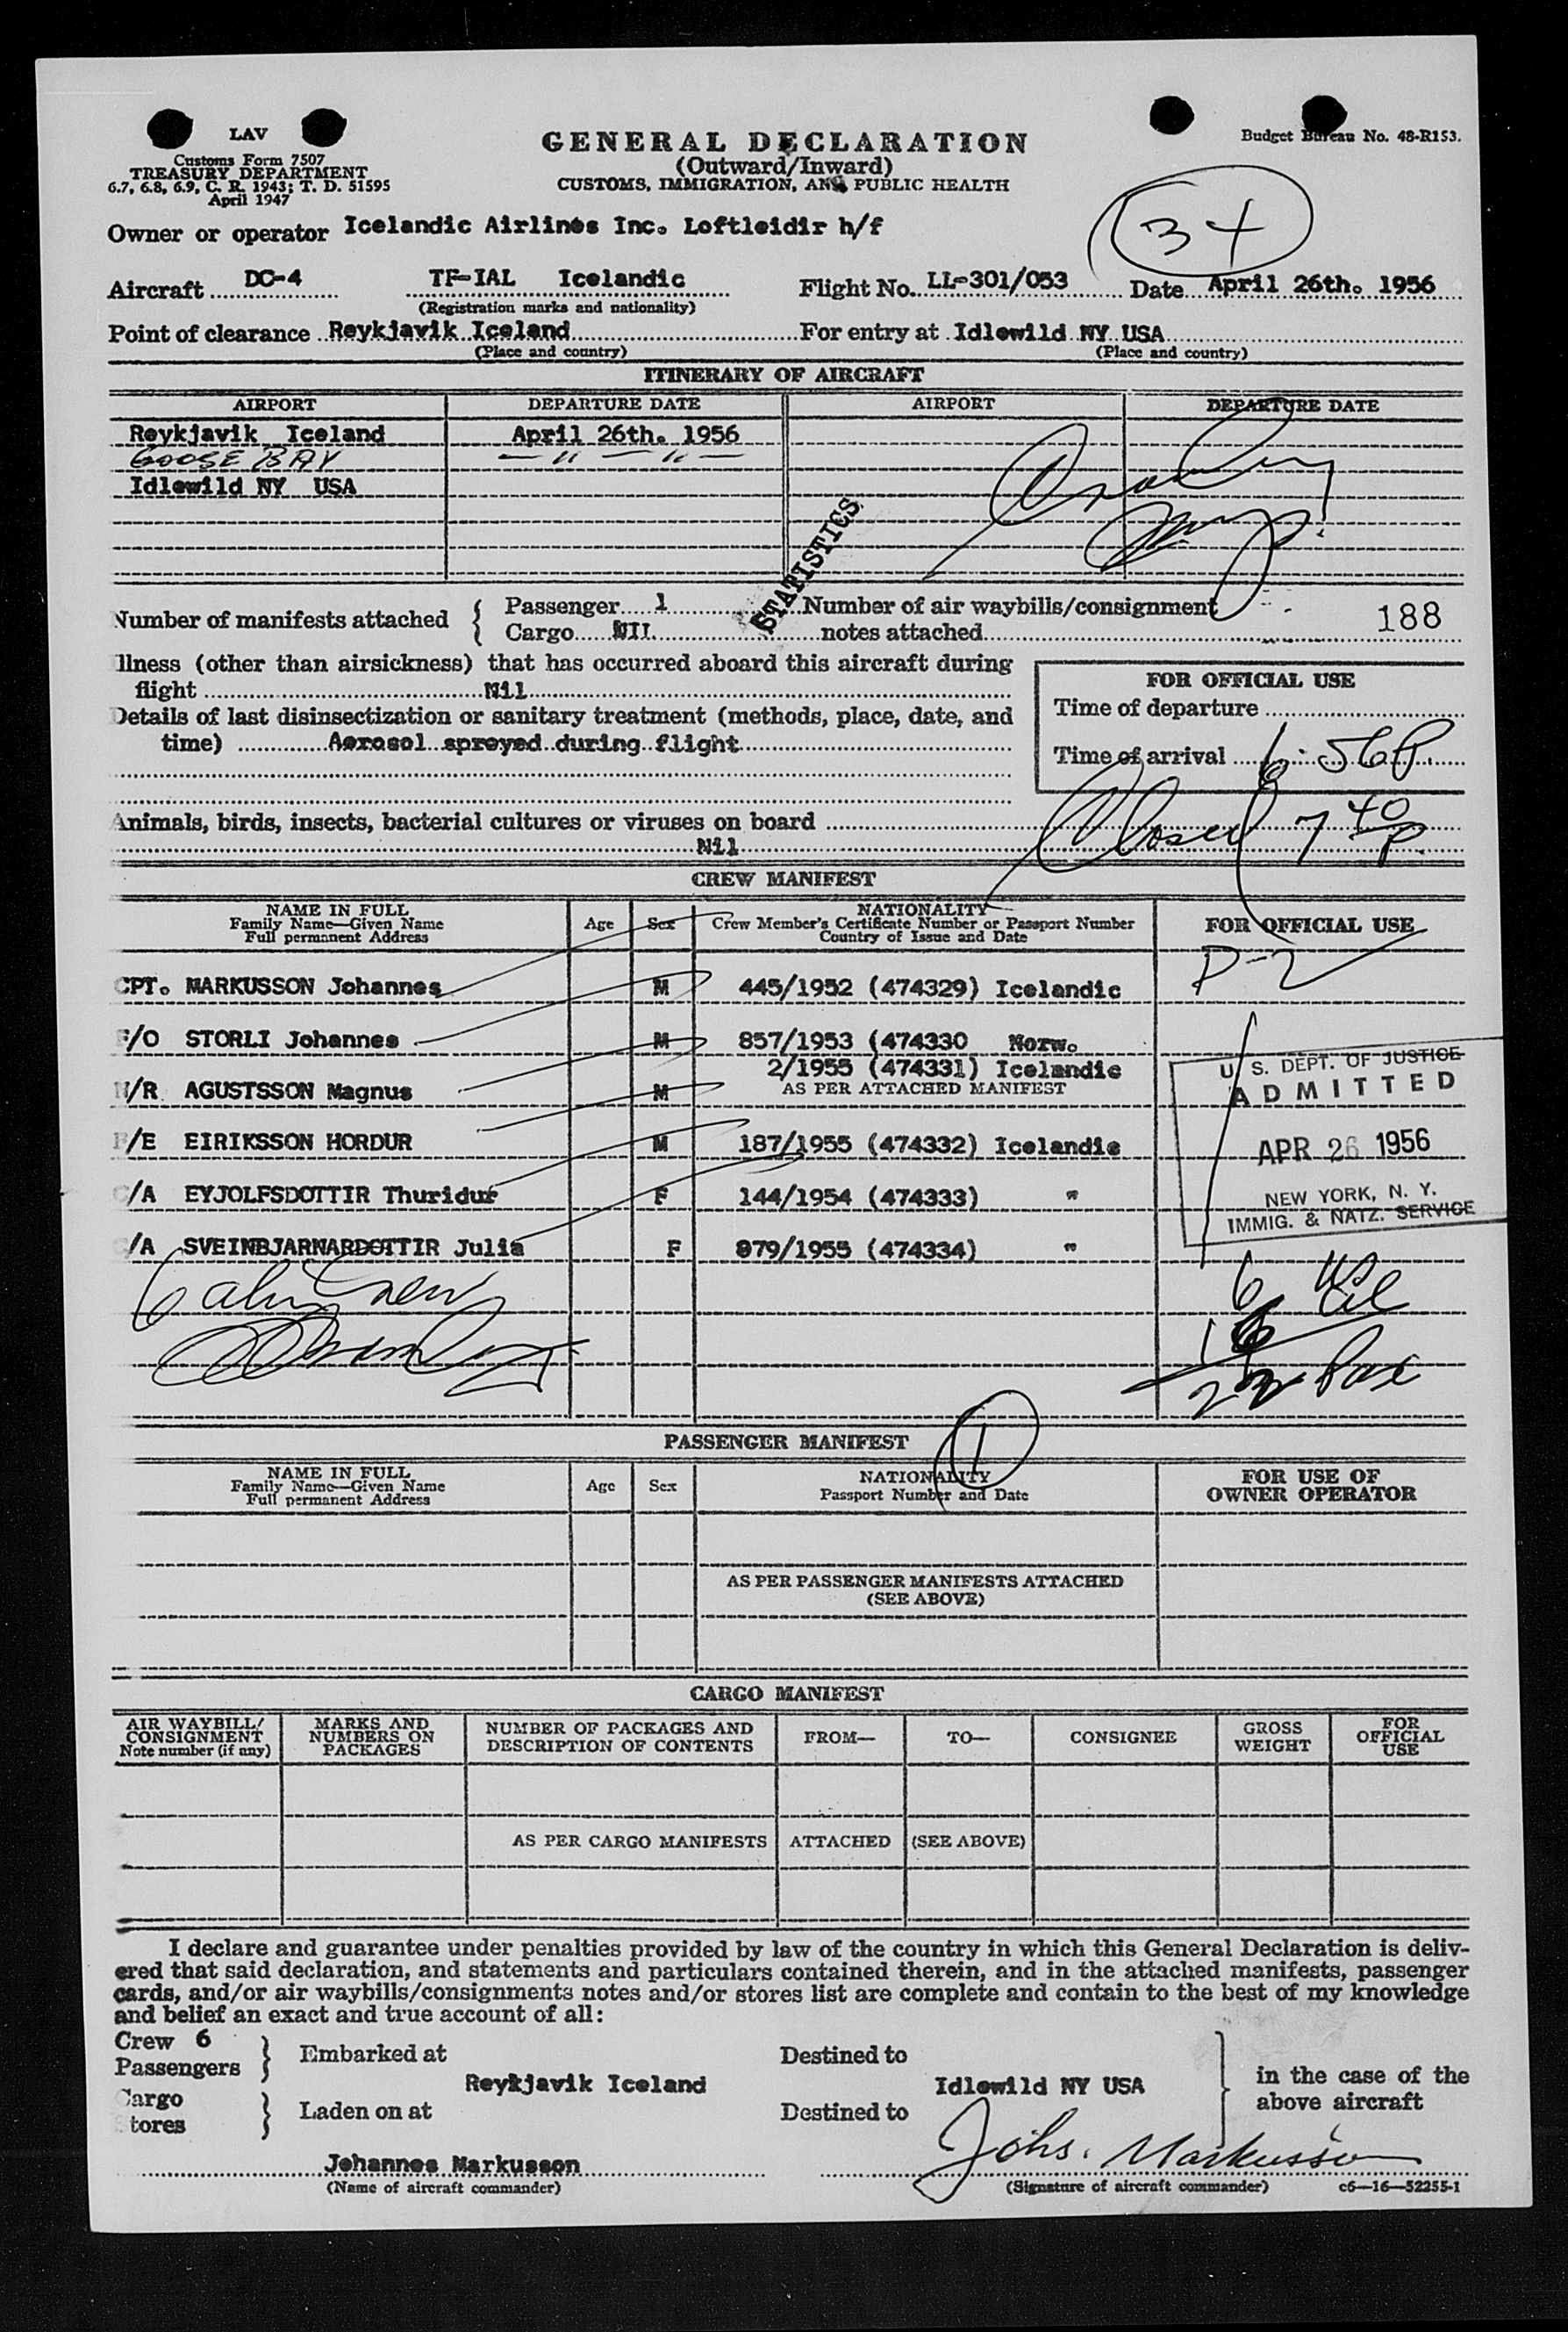 LAV
Customs Form 7507
TREASURY DEPARTMENT
6.7, 6.8, 6.9, C. R. 1943; T. D. 51595
April 1947
GENERAL DECLARATION
(Outward/Inward)
CUSTOMS, IMMIGRATION, AND PUBLIC HEALTH
Budget Bureau No. 48-R153.
34
Owner or operator Icelandic Airlines Inc. Loftleidir h/f
Aircraft DC-4 TF-IAL Icelandic Flight No. LL-301/053 Date April 26th. 1956
(Registration marks and nationality)
Point of clearance Reykjavik Iceland For entry at Idlewild NY USA
(Place and country) (Place and country)
ITINERARY OF AIRCRAFT
AIRPORT DEPARTURE DATE AIRPORT DEPARTURE DATE
Reykjavik Iceland April 26th. 1956
GOOSE BAY — " — " —
Idlewild NY USA
STATISTICS
Number of manifests attached { Passenger 1 Number of air waybills/consignment
Cargo NIL notes attached 188
llness (other than airsickness) that has occurred aboard this aircraft during
flight Nil
Details of last disinsectization or sanitary treatment (methods, place, date, and
time) Aerosol spreyed during flight
FOR OFFICIAL USE
Time of departure
Time of arrival 6:56P.
Animals, birds, insects, bacterial cultures or viruses on board
Nil
Closed 7 40 P.
CREW MANIFEST
NAME IN FULL
Family Name—Given Name
Full permanent Address
Age
Sex
NATIONALITY
Crew Member's Certificate Number or Passport Number
Country of Issue and Date
FOR OFFICIAL USE
P-2
CPT. MARKUSSON Johannes M 445/1952 (474329) Icelandic
F/O STORLI Johannes M 857/1953 (474330 Norw.
2/1955 (474331) Icelandic
/R AGUSTSSON Magnus M AS PER ATTACHED MANIFEST
/E EIRIKSSON HORDUR M 187/1955 (474332) Icelandic
/A EYJOLFSDOTTIR Thuridur F 144/1954 (474333) "
/A SVEINBJARNARDOTTIR Julia F 879/1955 (474334) "
U. S. DEPT. OF JUSTICE
ADMITTED
APR 26 1956
NEW YORK, N. Y.
IMMIG. & NATZ. SERVICE
6 alien crew
6 US
16 al
22 Pax
1
PASSENGER MANIFEST
NAME IN FULL
Family Name—Given Name
Full permanent Address
Age
Sex
NATIONALITY
Passport Number and Date
FOR USE OF
OWNER OPERATOR
AS PER PASSENGER MANIFESTS ATTACHED
(SEE ABOVE)
CARGO MANIFEST
AIR WAYBILL/
CONSIGNMENT
Note number (if any)
MARKS AND
NUMBERS ON
PACKAGES
NUMBER OF PACKAGES AND
DESCRIPTION OF CONTENTS
FROM—
TO—
CONSIGNEE
GROSS
WEIGHT
FOR
OFFICIAL
USE
AS PER CARGO MANIFESTS ATTACHED (SEE ABOVE)
I declare and guarantee under penalties provided by law of the country in which this General Declaration is deliv-
ered that said declaration, and statements and particulars contained therein, and in the attached manifests, passenger
cards, and/or air waybills/consignments notes and/or stores list are complete and contain to the best of my knowledge
and belief an exact and true account of all:
Crew 6
Passengers } Embarked at Destined to
Reykjavik Iceland Idlewild NY USA
Cargo
Stores } Laden on at Destined to
in the case of the
above aircraft
Johannes Markusson Johs. Markusson
(Name of aircraft commander) (Signature of aircraft commander) c6—16—52255-1